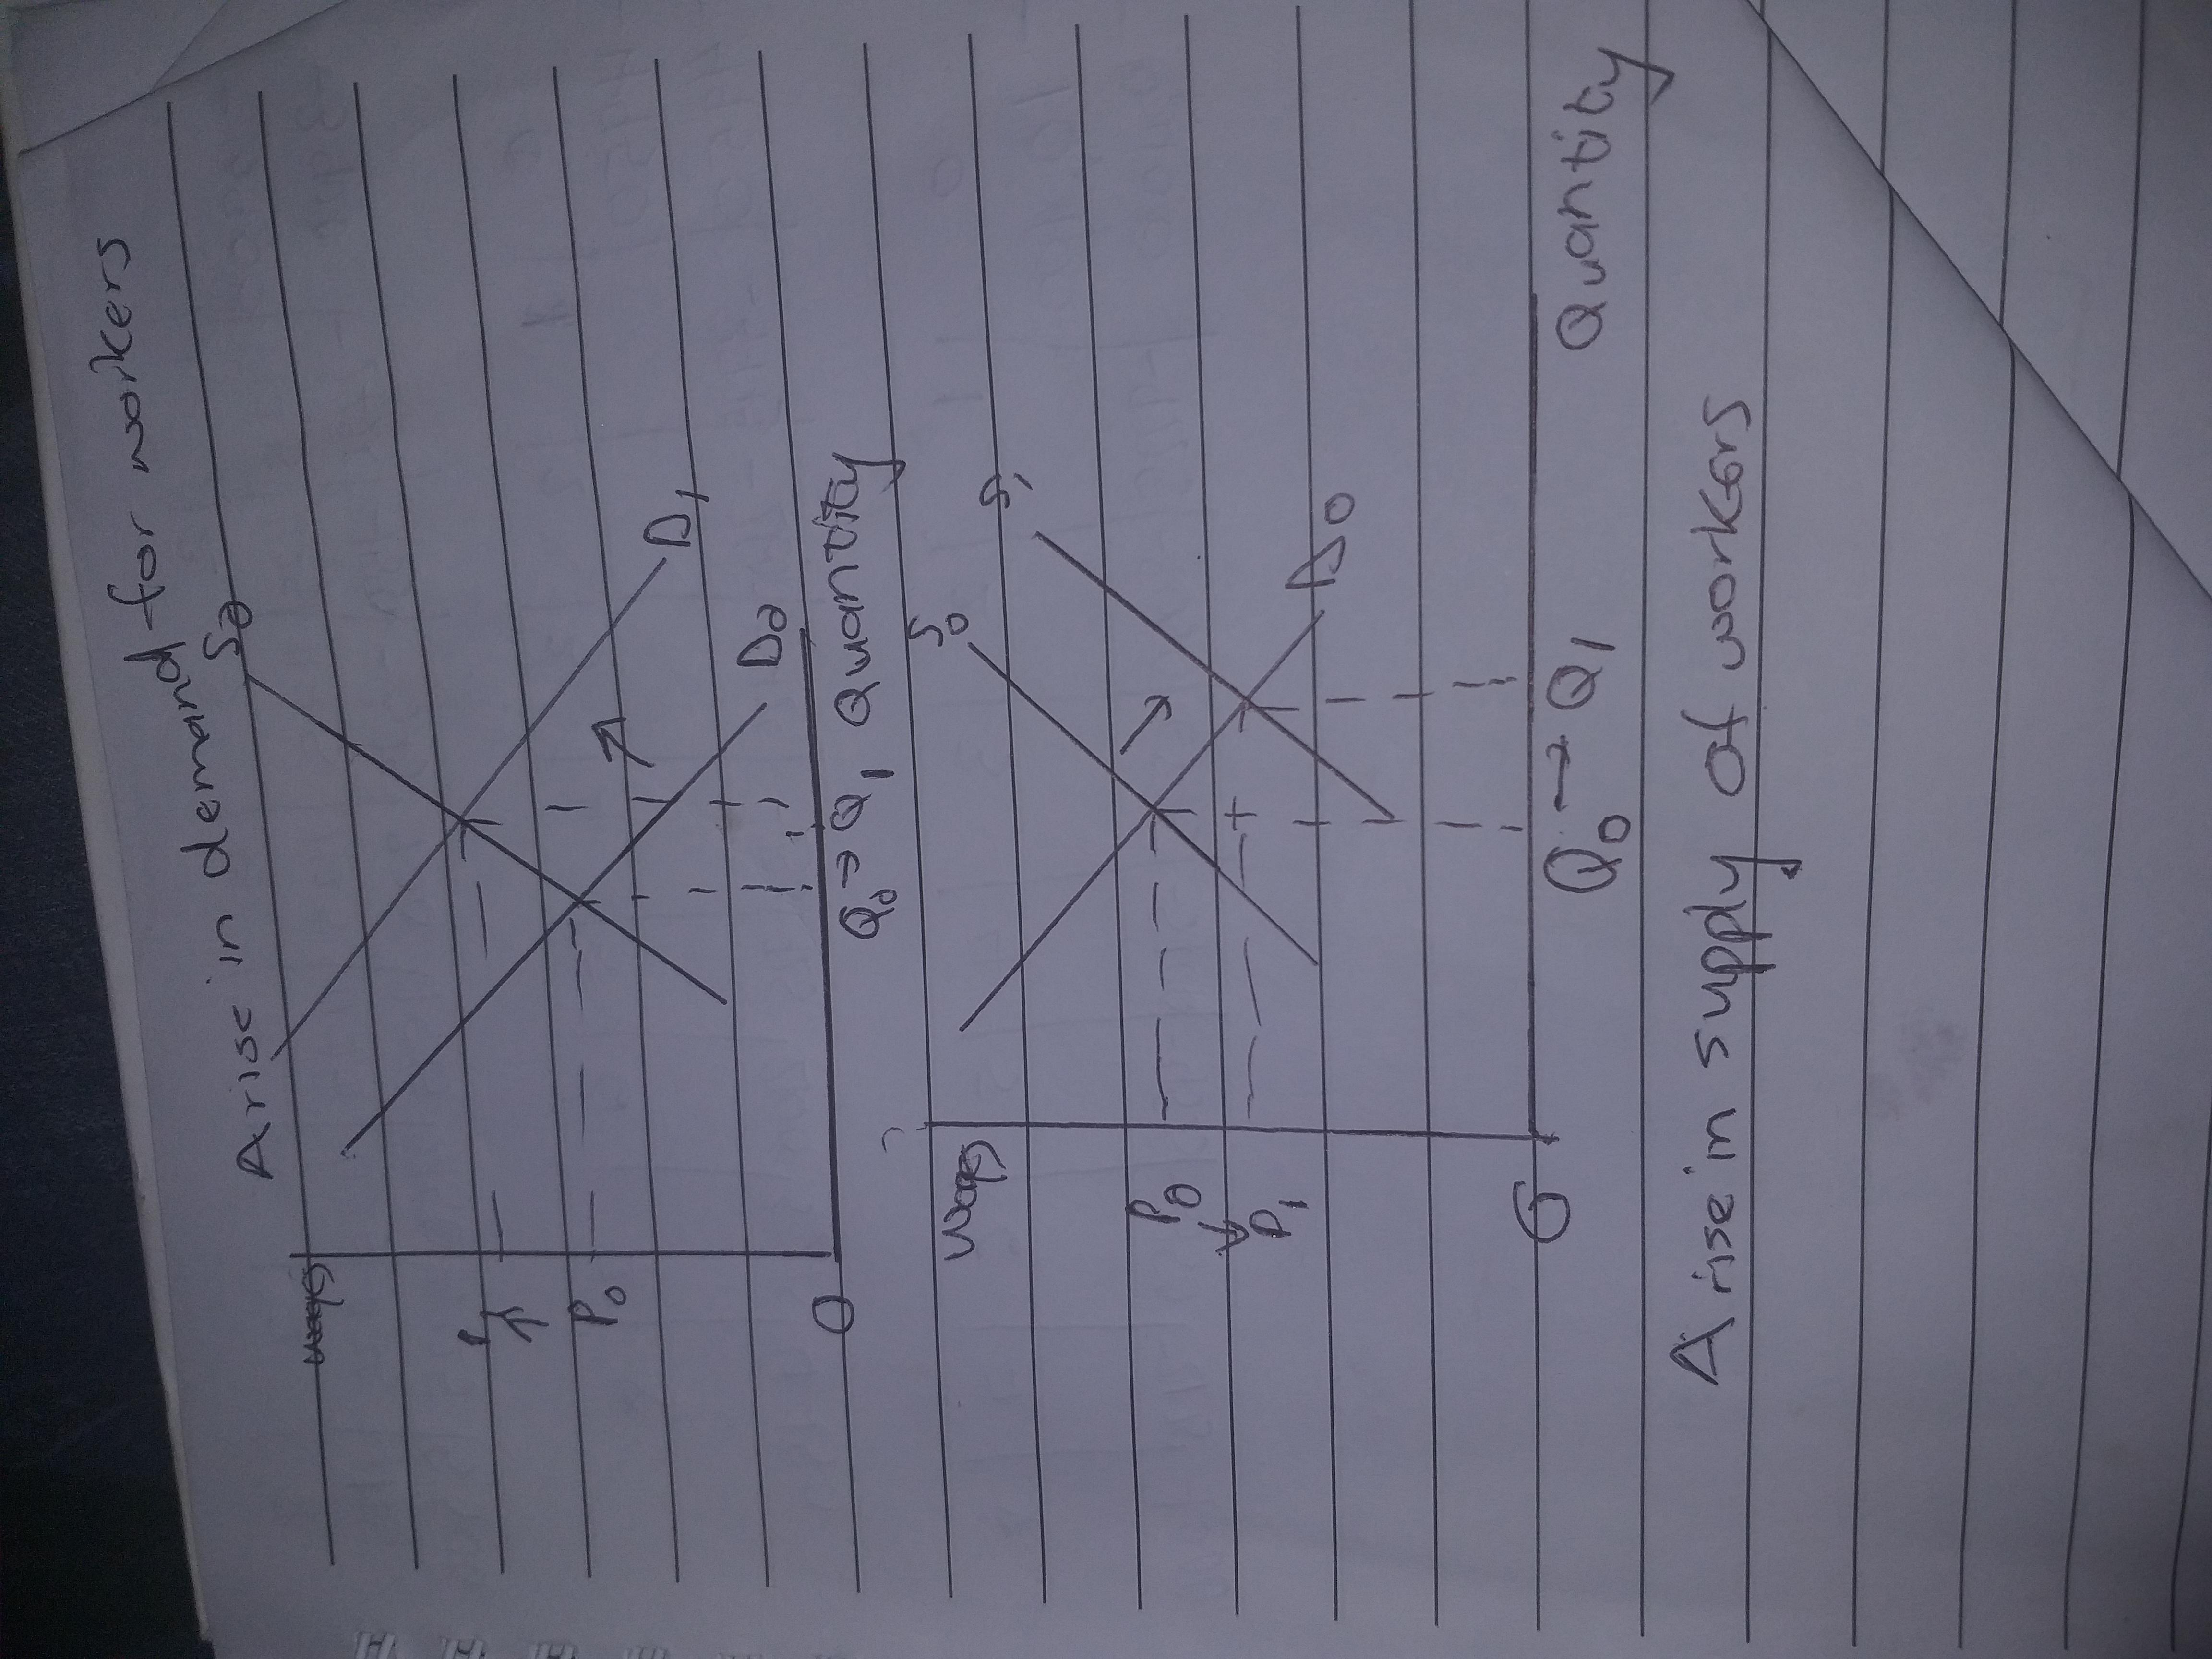 A rise in demand for workers
wages
S0
D1
P1
P0
D0
0
Q0 → Q1 Quantity
wages
S0
S1
P0
P1
D0
0
Q0 → Q1
Quantity
A rise in supply of workers